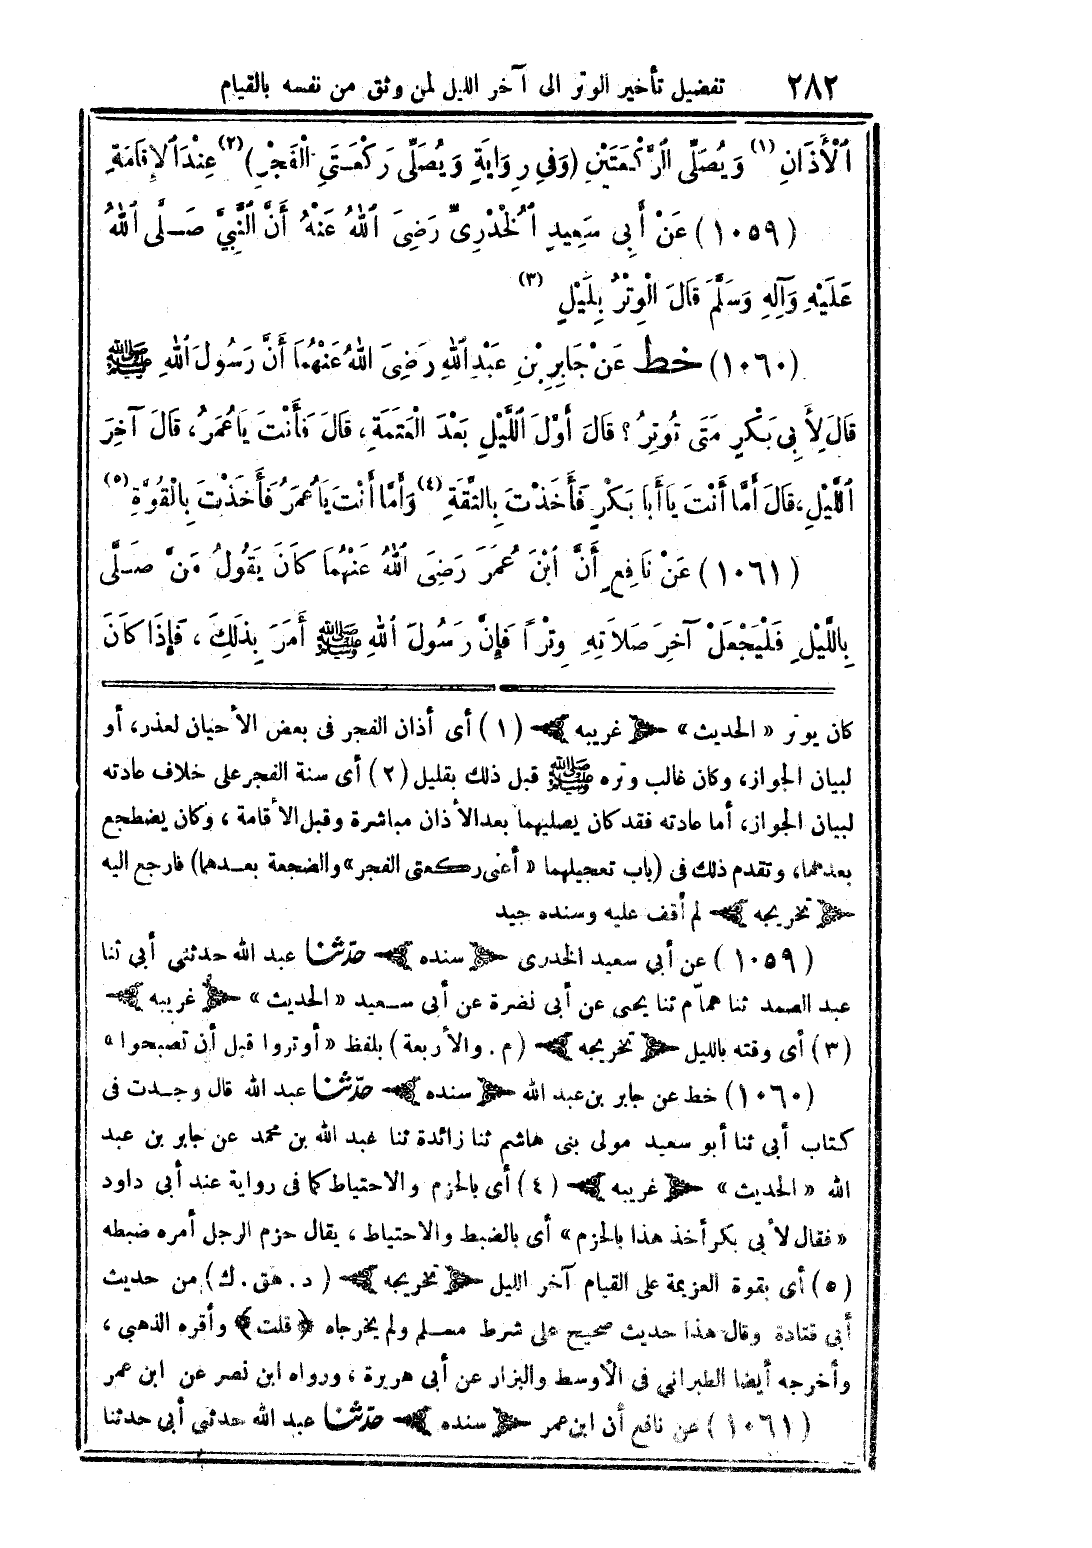 ٢٨٢ تفضيل تأخير الوتر الى آخر الليل لمن وثق من نفسه بالقيام
ٱلْأَذَانِ (١) وَيُصَلِّى ٱلرَّكْعَتَيْنِ (وَفِى رِوَايَةٍ وَيُصَلِّى رَكْعَتَىِ الْفَجْرِ) (٢) عِنْدَ ٱلْإِقَامَةِ
(١٠٥٩) عَنْ أَبِى سَعِيدٍ ٱلْخُدْرِىِّ رَضِىَ ٱللهُ عَنْهُ أَنَّ ٱلنَّبِيَّ صَلَّى ٱللهُ
عَلَيْهِ وَآلِهِ وَسَلَّمَ قَالَ الْوِتْرُ بِلَيْلٍ (٣)
(١٠٦٠) خط عَنْ جَابِرِ بْنِ عَبْدِ ٱللهِ رَضِىَ ٱللهُ عَنْهُمَا أَنَّ رَسُولَ ٱللهِ ﷺ
قَالَ لِأَبِى بَكْرٍ مَتَى تُوتِرُ؟ قَالَ أَوَّلَ ٱللَّيْلِ بَعْدَ الْعَتَمَةِ، قَالَ فَأَنْتَ يَا عُمَرُ، قَالَ آخِرَ
ٱللَّيْلِ، قَالَ أَمَّا أَنْتَ يَا أَبَا بَكْرٍ فَأَخَذْتَ بِالثِّقَةِ (٤) وَأَمَّا أَنْتَ يَا عُمَرُ فَأَخَذْتَ بِالْقُوَّةِ (٥)
(١٠٦١) عَنْ نَافِعٍ أَنَّ ٱبْنَ عُمَرَ رَضِىَ ٱللهُ عَنْهُمَا كَانَ يَقُولُ مَنْ صَلَّى
بِاللَّيْلِ فَلْيَجْعَلْ آخِرَ صَلَاتِهِ وِتْرًا فَإِنَّ رَسُولَ ٱللهِ ﷺ أَمَرَ بِذَلِكَ، فَإِذَا كَانَ
كان يوتر «الحديث» ﴿غريبه﴾ (١) أى أذان الفجر فى بعض الأحيان لعذر، أو
لبيان الجواز، وكان غالب وتره ﷺ قبل ذلك بقليل (٢) أى سنة الفجر على خلاف عادته
لبيان الجواز، أما عادته فقد كان يصليهما بعد الأذان مباشرة وقبل الأقامة، وكان يضطجع
بعدهما، وتقدم ذلك فى (باب تعجيلهما «أعنى ركعتى الفجر» والضجعة بعدهما) فارجع اليه
﴿تخريجه﴾ لم أقف عليه وسنده جيد
(١٠٥٩) عن أبي سعيد الخدرى ﴿سنده﴾ حدّثنا عبد الله حدثني أبي ثنا
عبد الصمد ثنا همّام ثنا يحيى عن أبى نضرة عن أبى سعيد «الحديث» ﴿غريبه﴾
(٣) أى وقته بالليل ﴿تخريجه﴾ (م. والأربعة) بلفظ «أوتروا قبل أن تصبحوا»
(١٠٦٠) خط عن جابر بن عبد الله ﴿سنده﴾ حدّثنا عبد الله قال وجدت فى
كتاب أبي ثنا أبو سعيد مولى بنى هاشم ثنا زائدة ثنا عبد الله بن محمد عن جابر بن عبد
الله «الحديث» ﴿غريبه﴾ (٤) أى بالحزم والاحتياط كما فى رواية عند أبى داود
«فقال لأبى بكر أخذ هذا بالحزم» أى بالضبط والاحتياط، يقال حزم الرجل أمره ضبطه
(٥) أى بقوة العزيمة على القيام آخر الليل ﴿تخريجه﴾ (د. هق. ك) من حديث
أبي قتادة وقال هذا حديث صحيح على شرط مسلم ولم يخرجاه ﴿قلت﴾ وأقره الذهبي،
وأخرجه أيضا الطبراني فى الأوسط والبزار عن أبى هريرة، ورواه ابن نصر عن ابن عمر
(١٠٦١) عن نافع أن ابن عمر ﴿سنده﴾ حدّثنا عبد الله حدثني أبى حدثنا